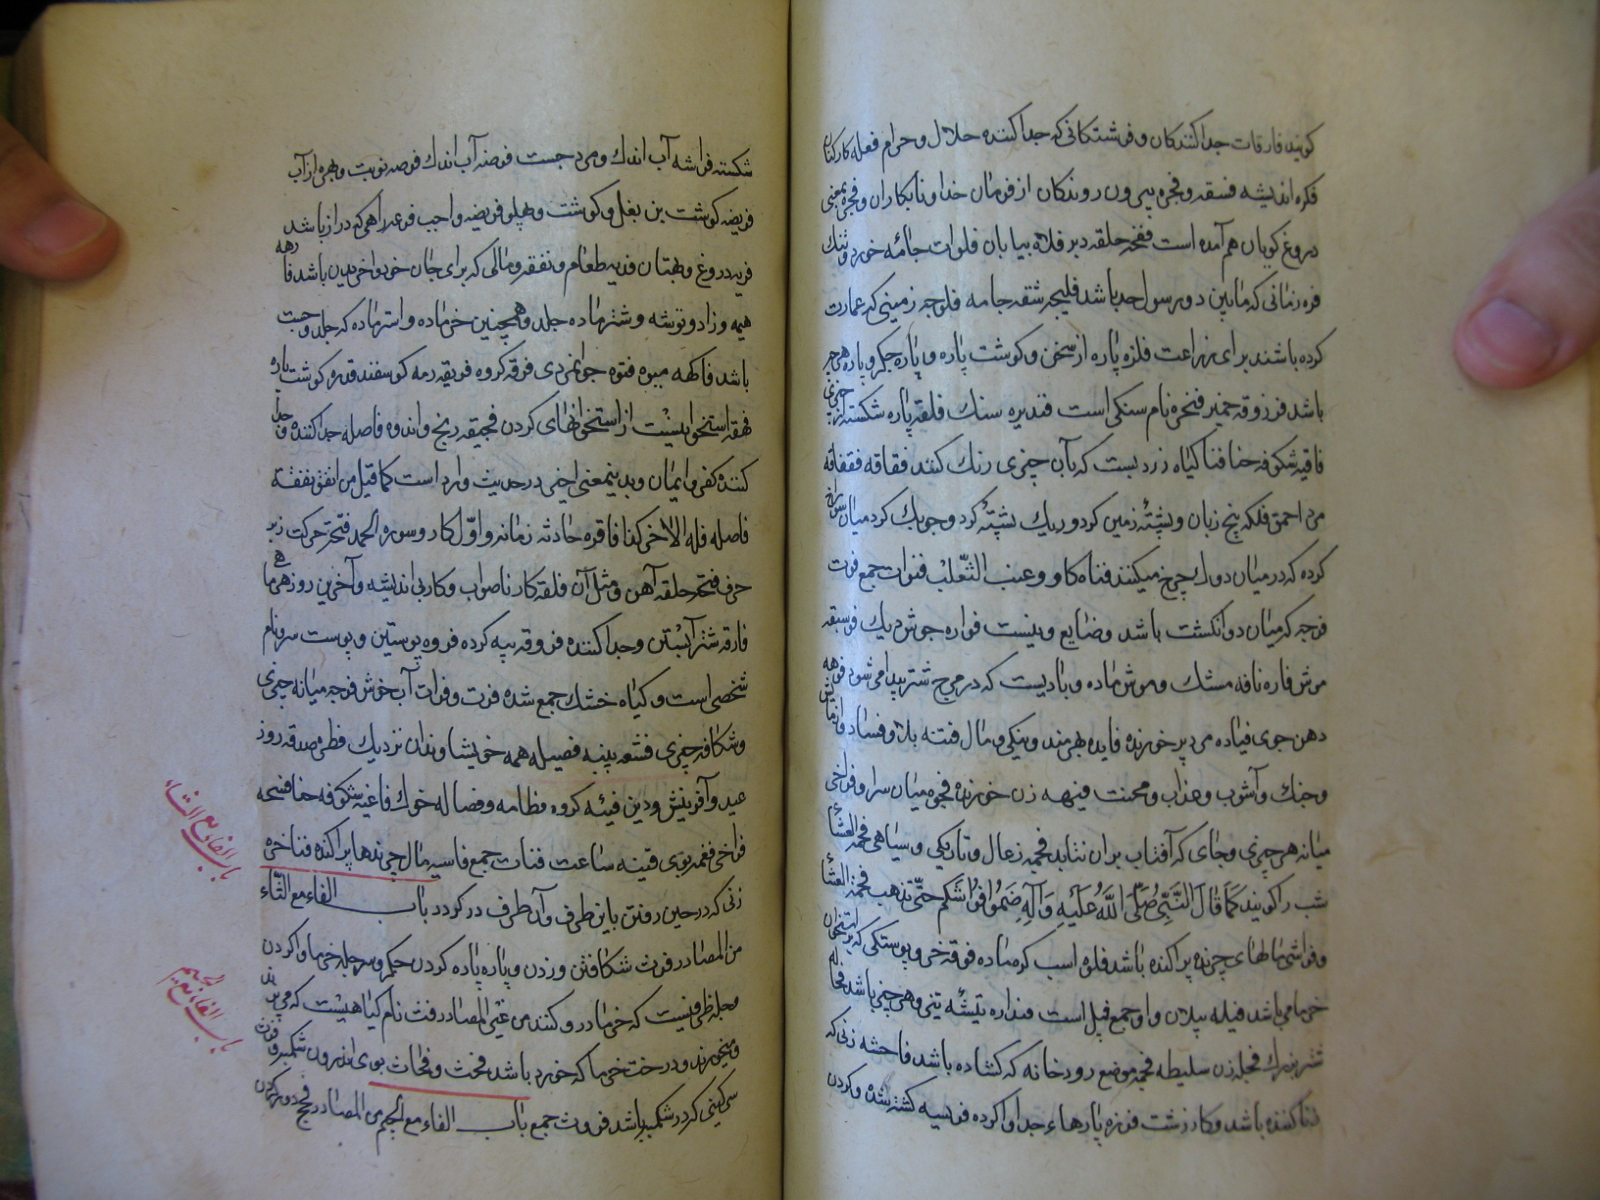 کویند فارقات جدا کنندکان و فرشتکانی که جدا کننده حلال و حرام فعله کارکنان
فکره اندیشه فسقه و فجره بیرون روندکان از فرمان خدا و نابکاران و فجره بمعنی
دروغ کویان هم آمده است فتخه حلقه دبر فلاة بیابان فلوات جامه خورد و تنک
فتره زمانی که مابین دو رسول حد باشد فلیجه شقه جامه فلوجه زمینی که عمارت
کرده باشند برای زراعت فلزه پاره از سخن و کوشت پاره و پاره جکر و پاره هر چیز
باشد فرزوقه خمیر فنخره نام سنکی است فندیره سنک فلقه پاره شکسته از چیزی
فاقیه شکوفه حنا فنا کیاه زردیست که بآن چیزی رنک کنند فقاقه فقفاقه
مرد احمق فلکه بیخ زبان و پشتهٔ زمین کرد و ریک پشتهٔ کرد و چوبک کرد میان سوراخ
کرده که در میان دوک چرخ میکنند فناه کاو و عنب الثعلب فنوات جمع فوت
فرجه که میان دو انکشت باشد و ضایع و نیست فواره جوش دیک فوسبقه
موش فاره نافه مشک و موش ماده و بادیست که در مج شتر پیدا می شود فوهه
دهن جوی فیاده مرد پر خورنده فایده بهرمند و نیکی و مال فتنه بلا و فساد و آزمایش
و جنک و آشوب و عذاب و محنت فیهه زن خورنده فجوه میان سرا و فراخی
میانه هر چیزی و جای که آفتاب بران نتابد فحمه زعال و تاریکی و سیاهی فحمه العشأ
شب را کویند کَمَا قَالَ النَّبِیُّ صَلَّی اللَّهُ عَلَیْهِ وَآلِهِ ضَمُّوا فَوَاشَکُم حَتّی تذهب فحمة العشأ
و فواشی مالهای چرنده پراکنده باشد فلوه اسب کره ماده فوقه خر و پوستکی که بر استخوان
خرما می باشد فیله پیلان و او جمع فیل است فنداره تیشهٔ تیز و هر چیز باشد فحاله
شتر بزرک فحله زن سلیطه فحمه موضع رودخانه که کشاده باشد فاحشه زنی که
زنا کننده باشد و کار زشت فرزه پارهاء جدا وا کرده فریسه کشته شده و کردن
شکسته فراشه آب اندک و مرد جست فرضه آب اندک فرصه نوبت و بهره از آب
فریضه کوشت بن بغل و کوشت و پهلو فریضه واجب فرعه راهی که دراز باشد
فریه دروغ و بهتان فدیه طعام و نفقه و مالی که برای جان خود واخریدن باشد فارهه
هیمه و زاد و توشه و شتر ماده جلد و همچنین خر ماده و استر ماده که جلد و جست
باشد فاکهه میوه فتوه جوانمردی فرقه کروه فریقه رمه کوسفند فدره کوشت پاره
فهقه استخوانیست از استخوانهای کردن فجیعه رنج و اندوه فاصله جدا کننده و جدا
کننده کفر و ایمان و بدینمعنی اخیر در حدیث وارد است کما قیل من انفق نفقة
فاصله فله الاخر کذا فاقره حادثه زمانه و اوّل کار و سوره الحمد فتحة حرکت زبر
حرف فتخه حلقه آهن و مثل آن فلتة کار ناصواب و کار بی اندیشه و آخرین روز هر ماهی
فارقه شتر آبستن و جدا کننده فروقه پیه کرده فروه پوستین و پوست سر و نام
شخصی است و کیاه خشک جمع شده فرت و فرات آب خوش فرجه میانه چیزی
و شکاف چیزی فشعه پنبه فصیله همه خویشاوندان نزدیک فطره صدقه روز
عید و آفرینش و دین فیئه کروه فظامه و فضاله خوک فاغیه شکوفه حنا فسحه
فراخی فغمه بوی فینه ساعت فنات جمع فاسیه مال چریدها پراکنده فتاخره
زنی که در حین رفتن باین طرف و آن طرف در کردد باب الفاء مع الثّاء
من المصادر فرث شکافتن و زدن و پاره پاره کردن جکر و سر جله خرما وا کردن
و جله ظرفیست که خرما درو کنند من غیر المصادر فث نام کیاهیست که می پزند
و میخورند و درخت خرما که خورد باشد فحث و فحاث بوی اندرون شکمبه و فرث
سرکینی کر در شکمبه باشد فروث جمع باب الفاء مع الجیم من المصادر فجج دور کردن
باب الفاء مع الثاء
باب الفاء مع الجیم